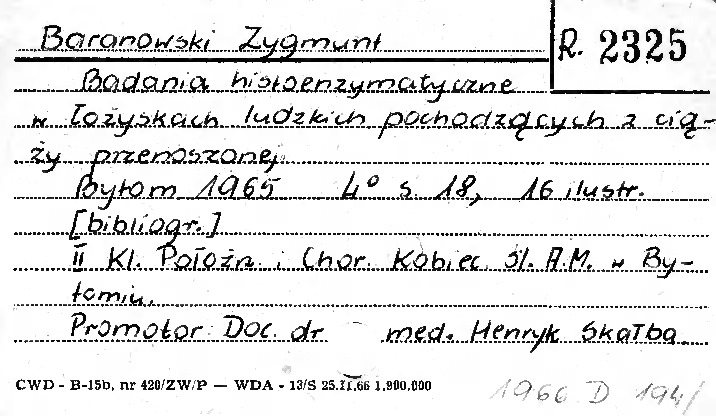 Baranowski Zygmunt
R. 2325
Badania histoenzymatyczne
w łożyskach ludzkich pochodzących z cią-
ży przenoszonej.
Bytom 1965 4° s. 18, 16 ilustr.
[bibliogr.]
II Kl. Położn. i Chor. Kobiec. Śl. A.M. w By-
tomiu.
Promotor: Doc. dr med. Henryk Skałba.
CWD - B-15b, nr 420/ZW/P — WDA - 13/S 25.II.66 1.900.000
1966 D 194/